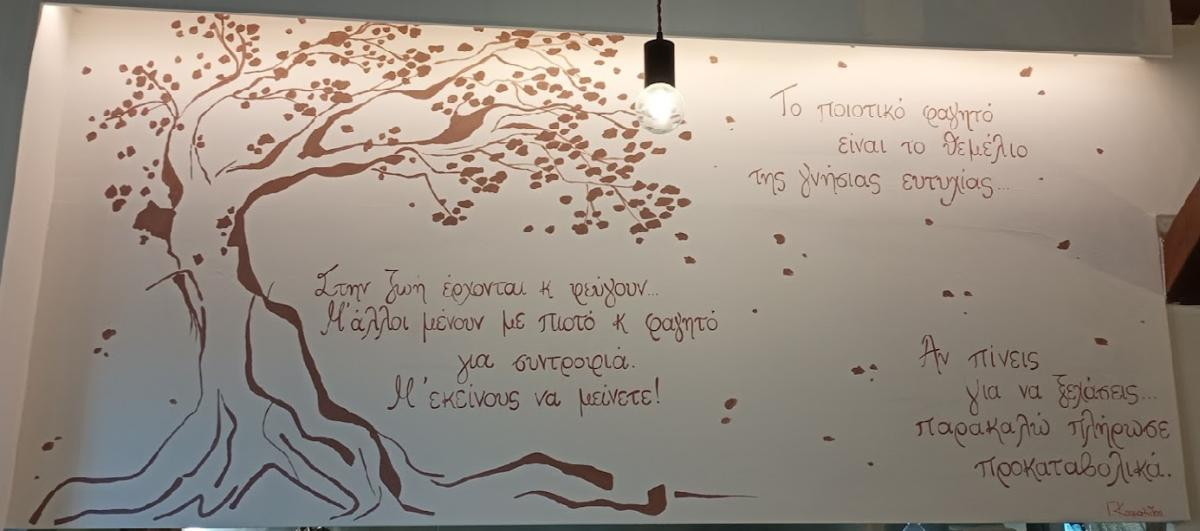 Το ποιοτικό φαγητό
είναι το θεμέλιο
της γνήσιας ευτυχίας...
Στην ζωή έρχονται κ φεύγουν...
Μ'άλλοι μένουν με πιοτό κ φαγητό
για συντροφιά.
Μ'εκείνους να μείνετε!
Αν πίνεις
για να ξεχάσεις...
παρακαλώ πλήρωσε
προκαταβολικά.